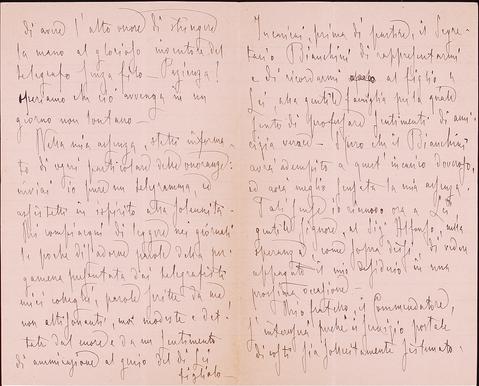 di avere l'alto onore di stringere
la mano al glorioso inventore del
telegrafo senza filo. Pazienza!
Speriamo che ciò avvenga in un
giorno non lontano.
Nella mia assenza, stetti informa-
to di ogni particolare delle onoranze:
inviai io pure un telegramma, ed
assistetti in ispirito alla solennità.
Mi compiacqui di leggere nei giornali
le poche disadorne parole della per-
gamena presentata dai telegrafisti
miei colleghi, parole scritte da me,
non altisonanti, ma modeste e det-
tate dal cuore e da un sentimento
di ammirazione al genio del di Lei
figliolo.
Incaricai, prima di partire, il Segre-
tario Bianchini di rappresentarmi
e di ricordarmi al figlio, a
Lei, alla gentile famiglia per la quale
sento di professare sentimenti di ami-
cizia verace. Spero che il Bianchini
avrà adempito a quest'incarico doveroso,
ed avrà meglio la mia assenza.
Tali sensi io rinnovo ora a Lei
gentile signore, al sig. Alfonso, nella
speranza come sopra dissi, di vedere
appagato il mio desiderio in una
prossima occasione.
Mio fratello, il Commendatore,
s'interessa perchè il servizio postale
di costì sia sollecitamente sistemato.